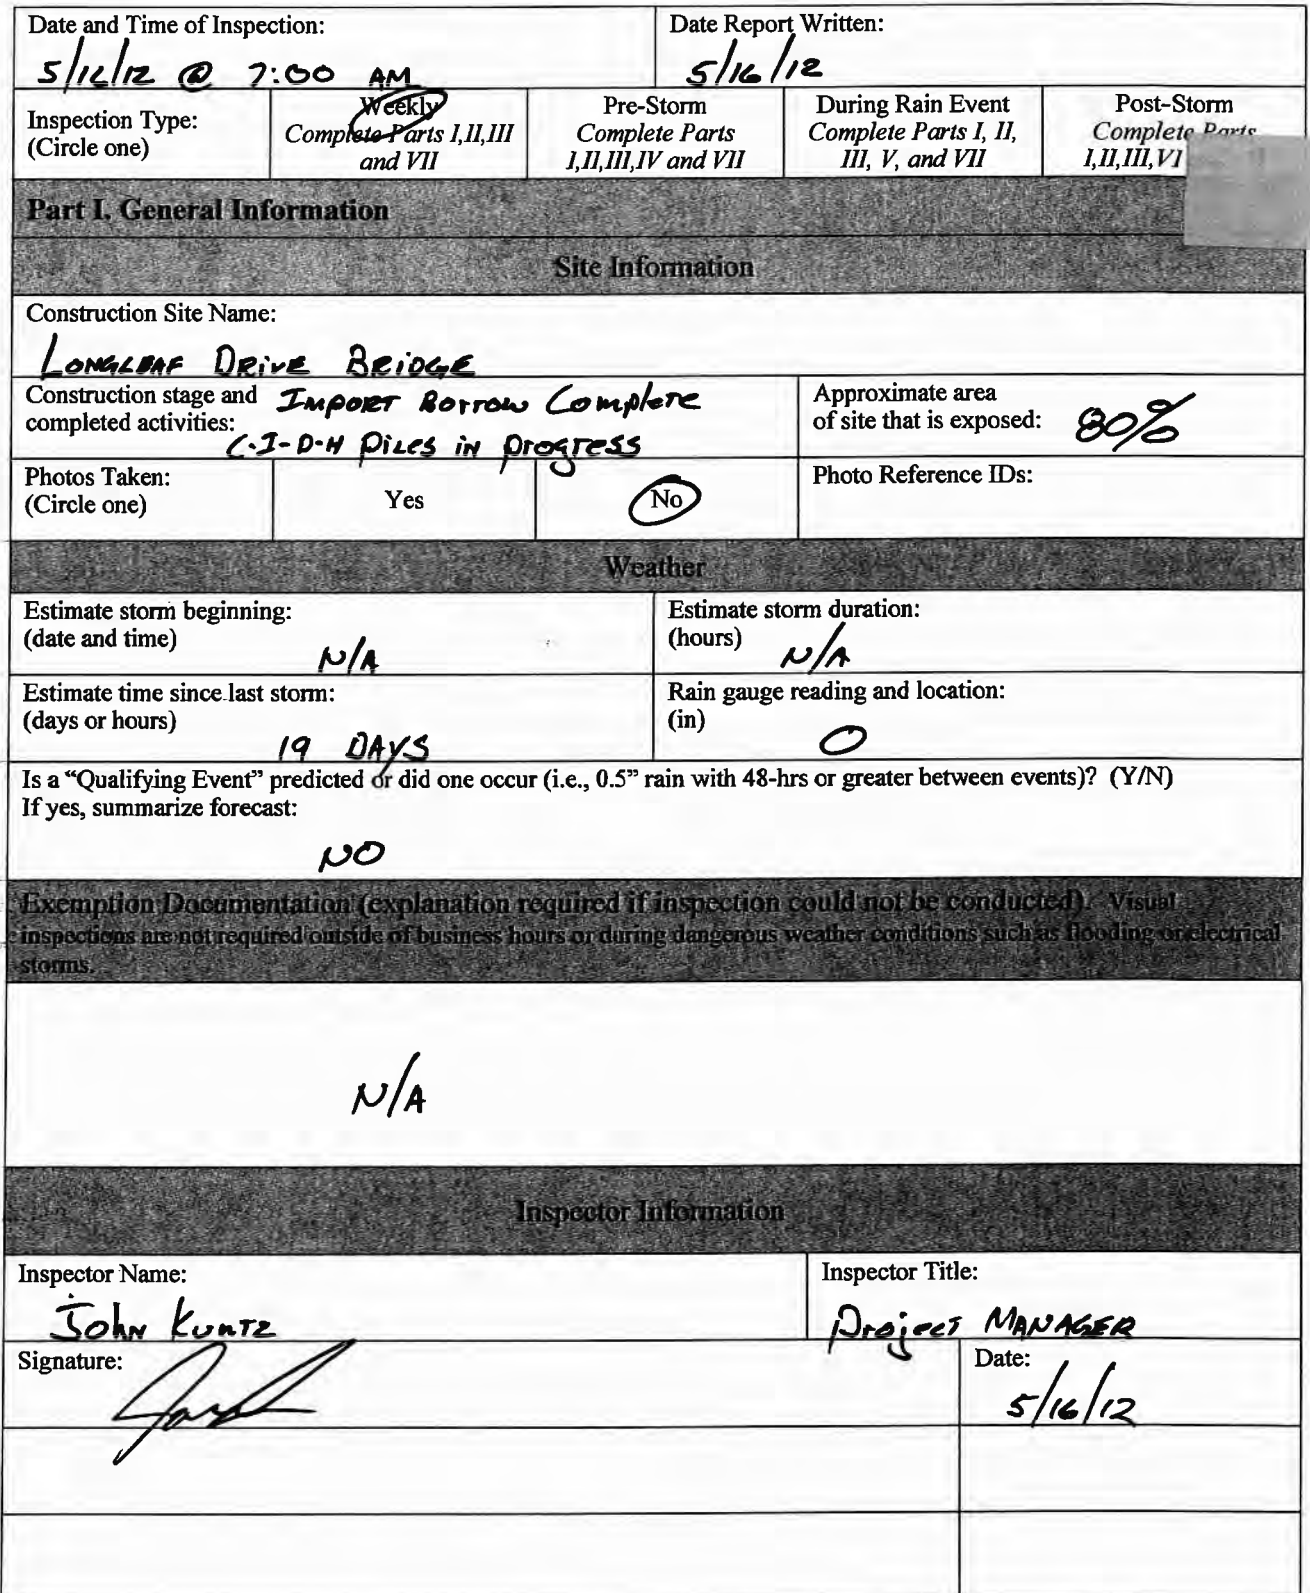 Date and Time of Inspection:
5/16/12 @ 7:00 AM
Date Report Written:
5/16/12
Inspection Type:
(Circle one)
Weekly
Complete Parts I,II,III
and VII
Pre-Storm
Complete Parts
I,II,III,IV and VII
During Rain Event
Complete Parts I, II,
III, V, and VII
Post-Storm
Complete Parts
I,II,III,VI
Part I. General Information
Site Information
Construction Site Name:
LONGLEAF DRIVE BRIDGE
Construction stage and
completed activities:
IMPORT BORROW COMPLETE
C-I-D-H PILES IN PROGRESS
Approximate area
of site that is exposed:
80%
Photos Taken:
(Circle one)
Yes
No
Photo Reference IDs:
Weather
Estimate storm beginning:
(date and time)
N/A
Estimate storm duration:
(hours)
N/A
Estimate time since last storm:
(days or hours)
19 DAYS
Rain gauge reading and location:
(in)
0
Is a “Qualifying Event” predicted or did one occur (i.e., 0.5” rain with 48-hrs or greater between events)? (Y/N)
If yes, summarize forecast:
NO
Exemption Documentation (explanation required if inspection could not be conducted). Visual
inspections are not required outside of business hours or during dangerous weather conditions such as flooding or electrical
storms.
N/A
Inspector Information
Inspector Name:
John Kuntz
Inspector Title:
Project MANAGER
Signature:
Date:
5/16/12